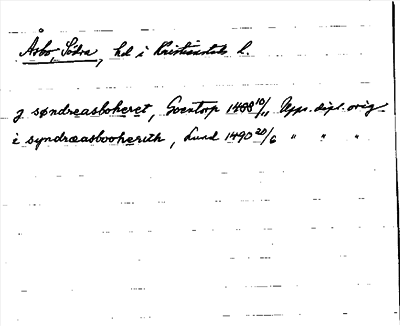 Åsbo, Södra, hd i Kristianstads l.
j søndreasboheret, Goentorp 1488 10/11 Upps. dipl. orig
i syndræasbooherith, Lund 1490 20/6 " " "